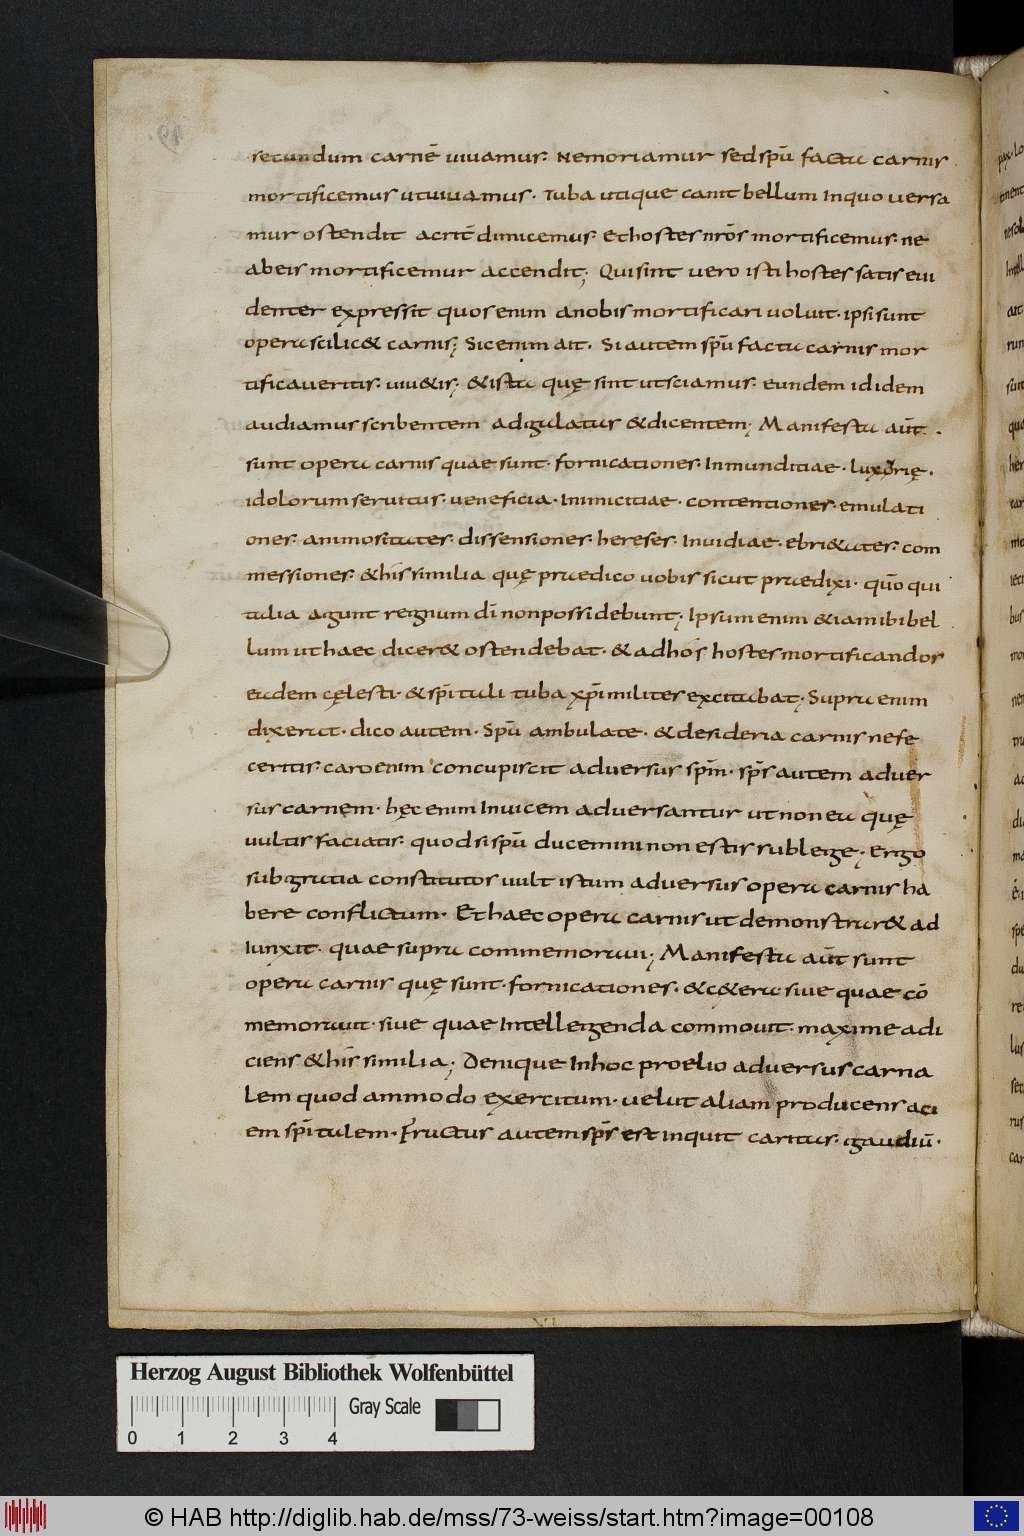 secundum carnē uiuamus. Nemoriamur sedspū facta carnis
mortificemus utuiuamus. Tuba utique canit bellum Inquo uersa
mur ostendit acrit̄ dimicemus. Ethostes nrōs mortificemus. ne
abeis mortificemur accendit; Quisint uero isti hostes satis eui
denter expressit quosenim anobis mortificari uoluit. ipsi sunt
opera scilic& carnis; Sicenim ait. Si autem spū facta carnis mor
tificaueritis. uiu&is; &ista quę sint utsciamus. eundem ididem
audiamus scribentem adgalatas &dicentem; Manifesta aūt.
sunt opera carnis quae sunt. fornicationes. Inmunditiae. luxorię.
idolorum seruitus. ueneficia. Inimicitiae. contentiones. emulati
ones. animositates. dissensiones. hereses. Inuidiae. ebri&ates. com
messiones. &his similia quę praedico uobis sicut praedixi. quō qui
talia agunt regnum dī nonpossidebunt; Ipsum enim &iam ibi bel
lum ut haec dicer& ostendebat. & adhos hostes mortificandos
eadem cęlesti. & spītali tuba xp̄i milites excitabat; Supra enim
dixerat. dico autem. Spū ambulate. & desideria carnis nefe
ceritis. caro enim concupiscit aduersus spm̄. sps̄ autem aduer
sus carnem. hęc enim Inuicem aduersantur ut non ea quę
uultis faciatis. quodsi spū ducemini non estis sub lege; Ergo
sub gratia constitutos uult istum aduersus opera carnis ha
bere conflictum. Et haec opera carnis ut demonstrar& ad
Iunxit. quae supra commemoraui; Manifesta aūt sunt
opera carnis quę sunt. fornicationes. &c&era siue quae cō
memorauit. siue quae Intellegenda commouit. maxime adi
ciens &his similia; Denique Inhoc proelio aduersus carna
lem quodammodo exercitum. uelut aliam producens aci
em spītalem. Fructus autem sps̄ est inquit caritas. gaudiū.
Herzog August Bibliothek Wolfenbüttel
Gray Scale
0 1 2 3 4
© HAB http://diglib.hab.de/mss/73-weiss/start.htm?image=00108